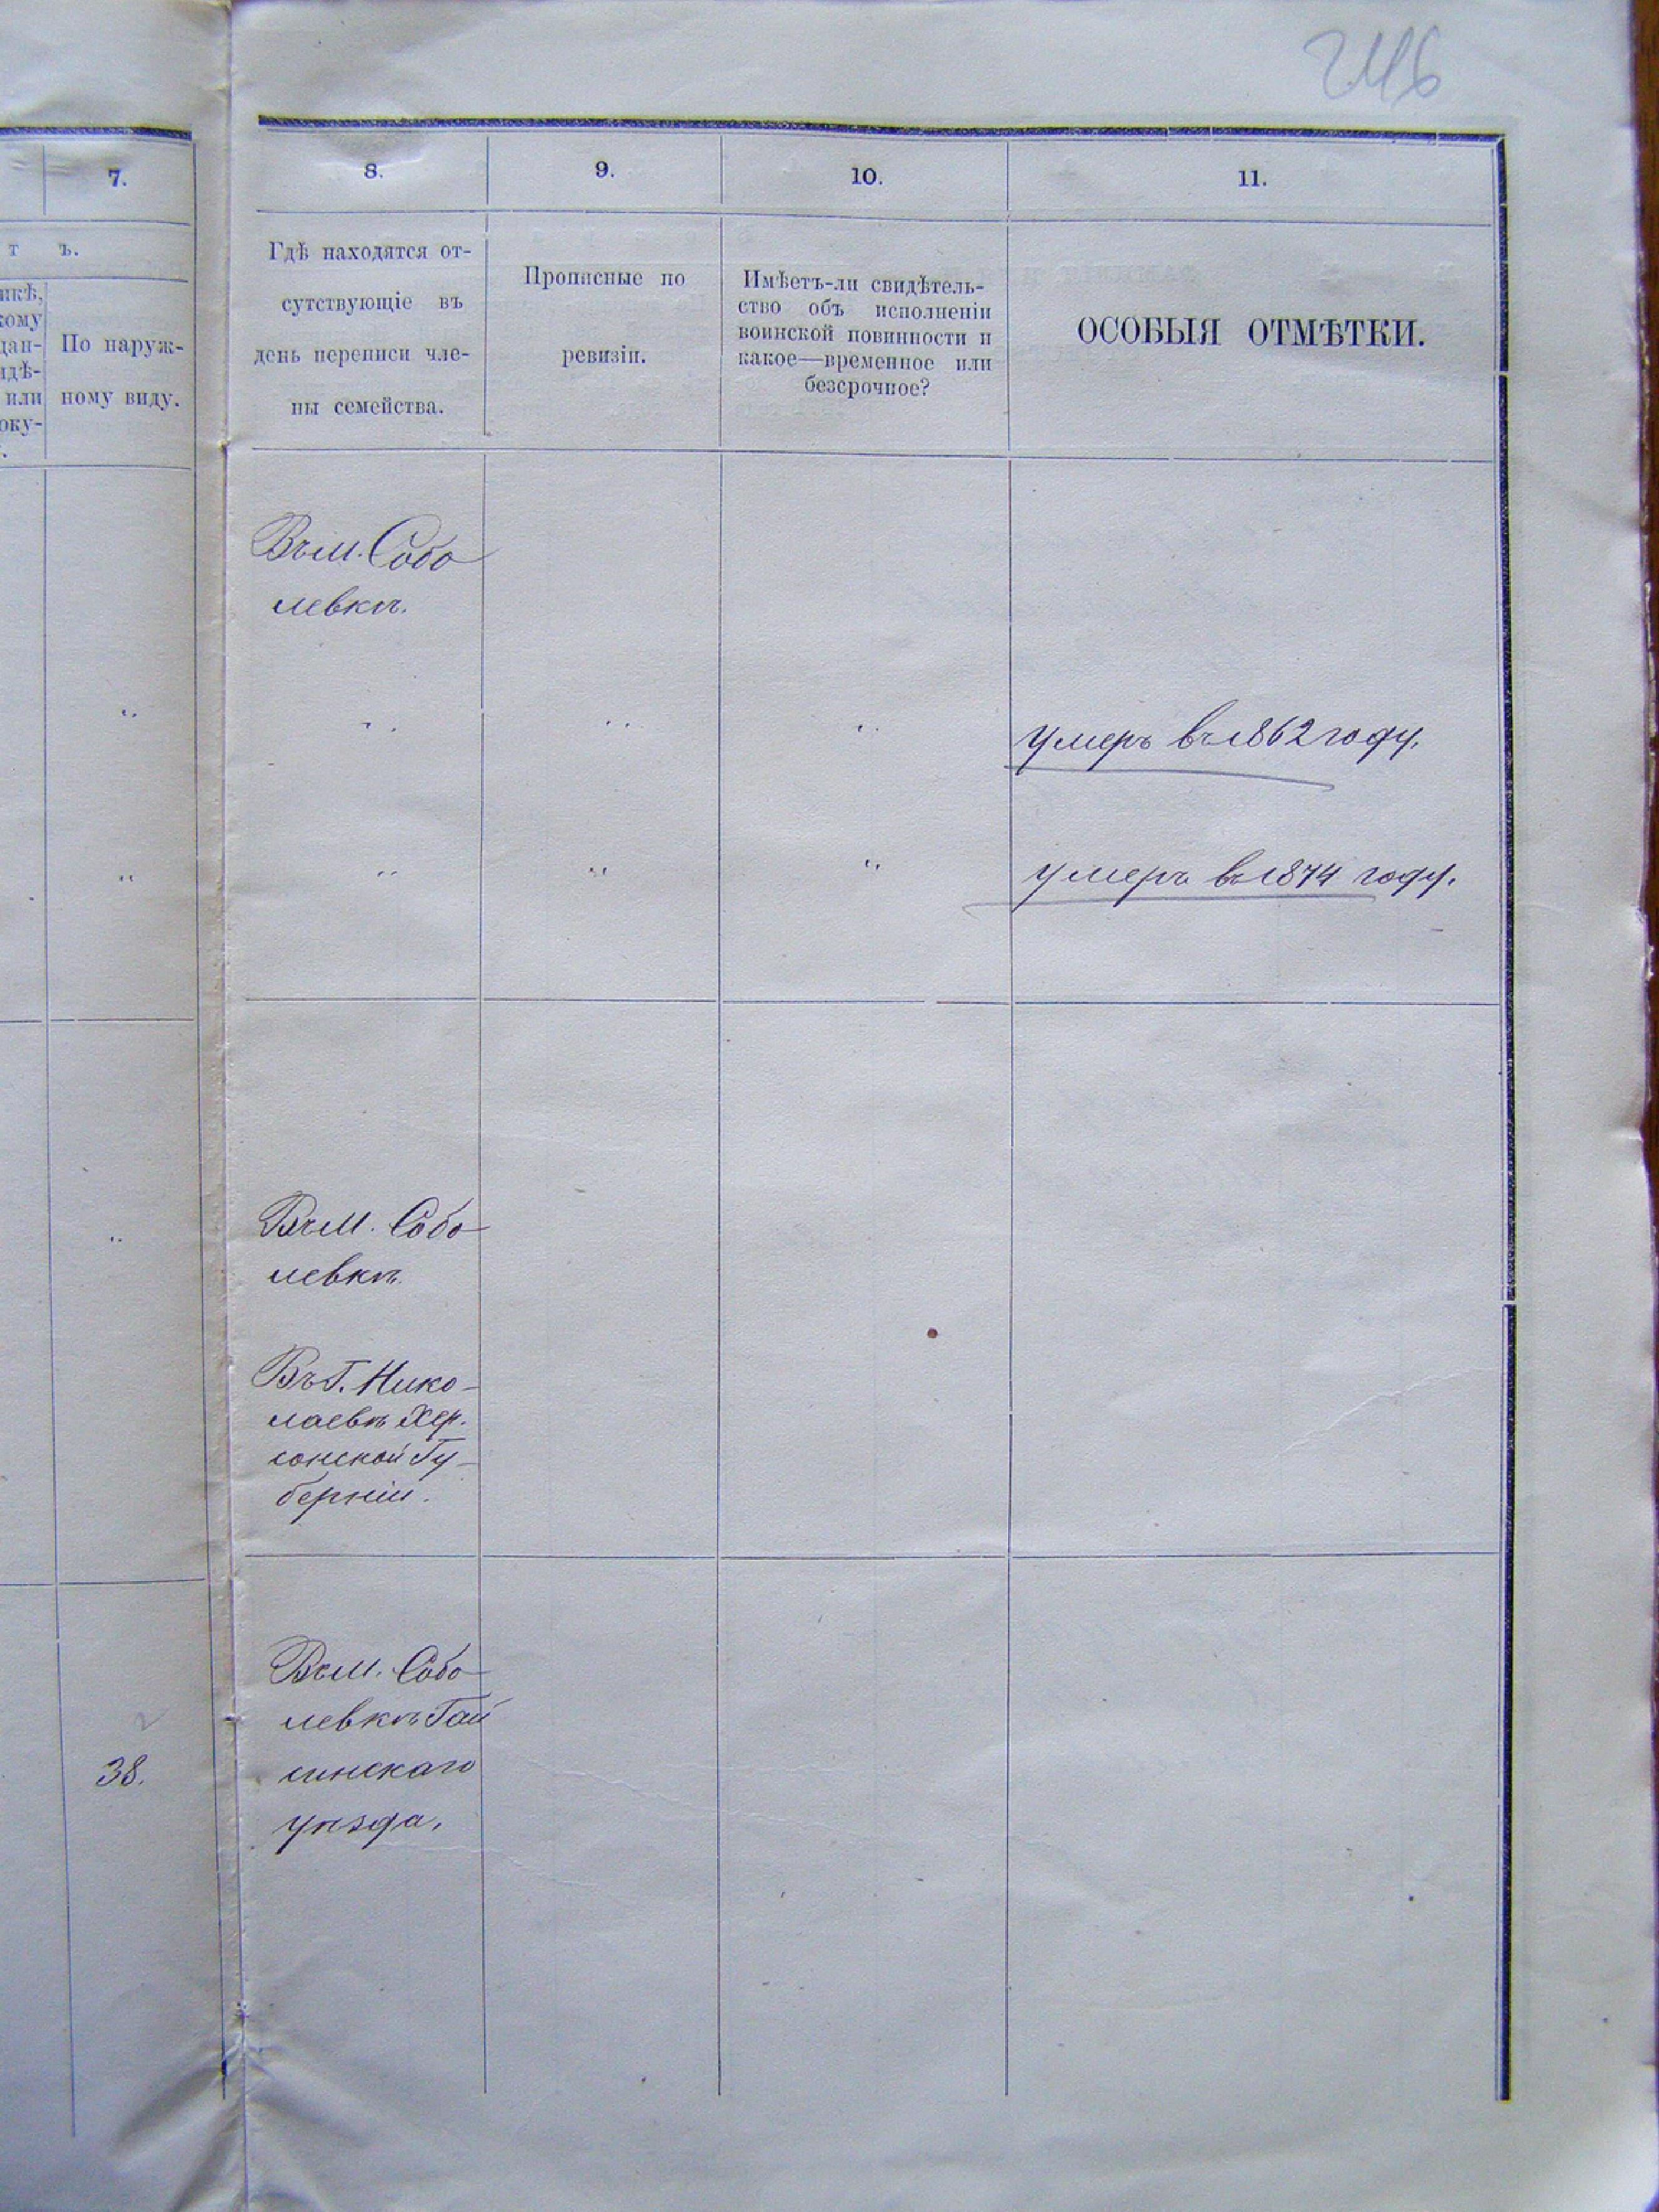 246
7.
т ъ.
По наруж-
ному виду.
38.
8.
9.
10.
11.
Гдѣ находятся от-
сутствующіе въ
день переписи чле-
ны семейства.
Прописные по
ревизіи.
Имѣетъ-ли свидѣтель-
ство объ исполненіи
воинской повинности и
какое—временное или
безсрочное?
ОСОБЫЯ ОТМѢТКИ.
Въ м. Собо
левкѣ.
" " " умеръ въ 1862 году.
" " " умеръ въ 1874 году.
Въ м. Собо
левкѣ
Въ Г. Нико-
лаевѣ Хер.
сонской Гу-
берніи.
Въ м. Собо
левкѣ Гай
синскаго
уѣзда.